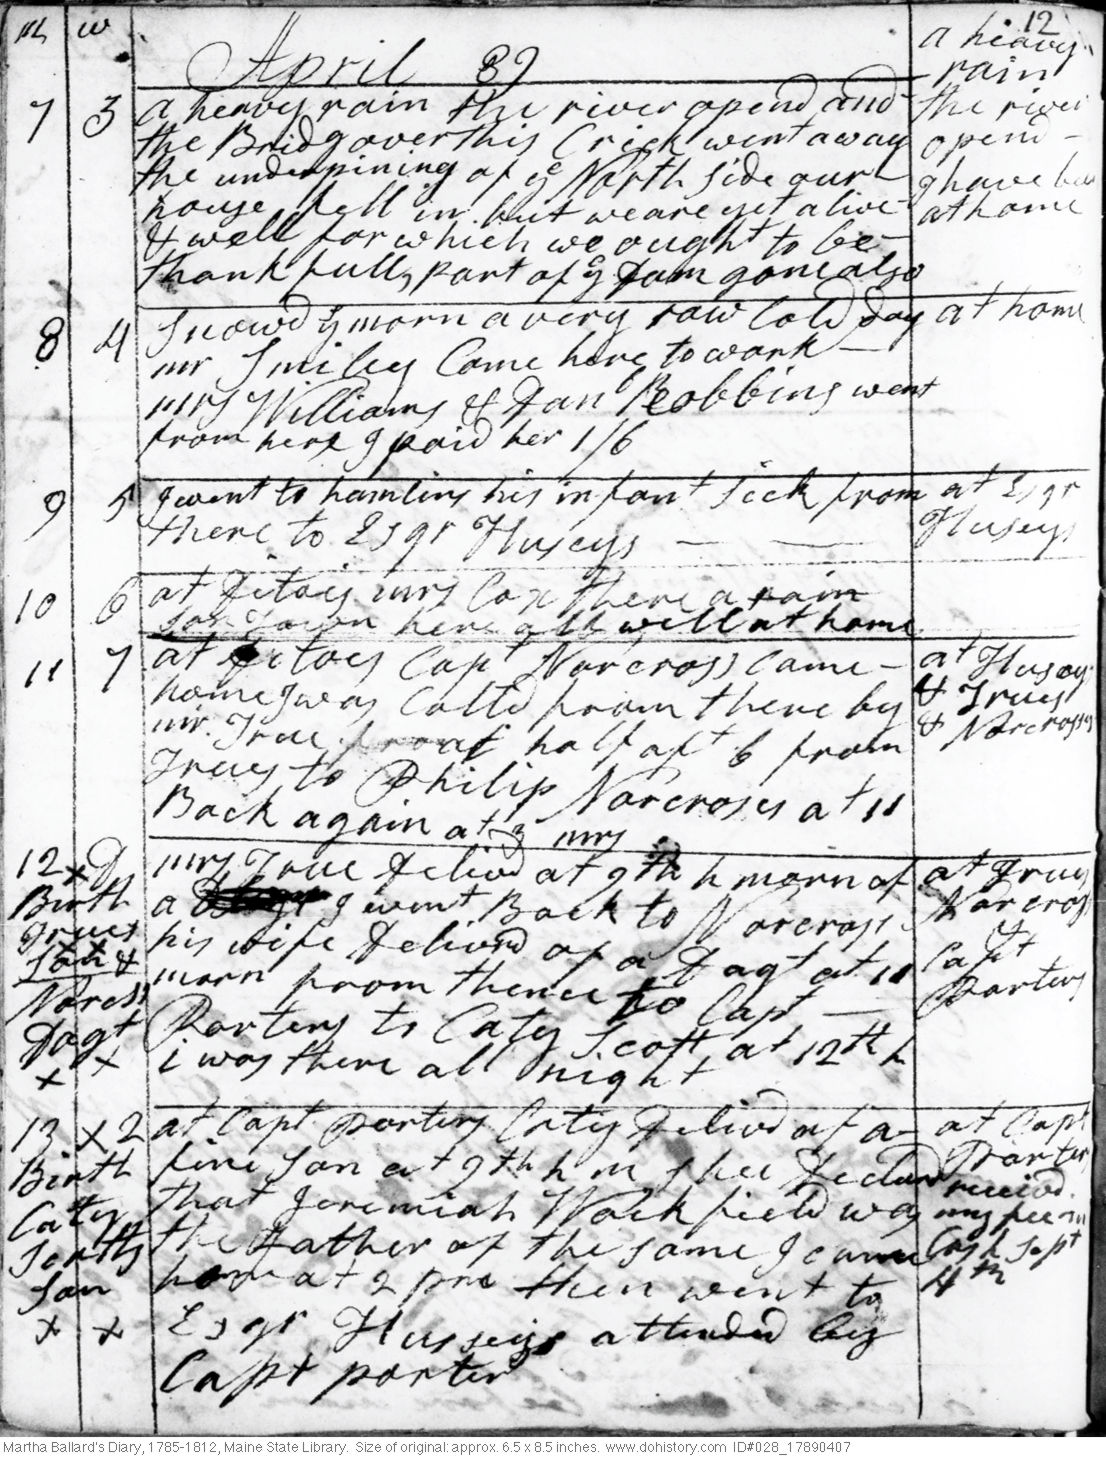 m w 12
April 89
a heavy
rain
the river
opend
I have been
at home
7 3 a heavy rain the river opend and
the Bridg over this Crick went away
the underpining of ye North side our
house fell in but we are yet alive
& well for which we ought to be
thankfull, part of ye Dam gone also
8 4 Snowd ye morn a very raw Cold day at home
mr Smiley Came here to work
mrs Williams & Danl Robbins went
from here I paid her 1/6
9 5 I went to hamlins his infant Sick from at Esqr
there to Esqr Huseys Huseys
10 6 at ditois mrs Cox there a rain
here all well at home
11 7 at ditoes Capt Norcross Came at Huseys
home I was Calld from there by & Trues
mr. True half aft 6 from & Norcrosses
Trues to Philip Norcroses at 11
Back again at 3
12 x D mrs True Delivd at 9th h morn of at Trues
Birth a I went Back to Norcross Norcross
Trues his wife Deliverd of a Dagt at 11 Capt
Son & morn from thence to Capt Porters
Norcss Porters to Caty Scott, at 12th h
Dagt i was there all night
x x
13 x 2 at Capt Porters Caty Delivd of a at Capt
Birth fine Son at 9th h m, shee Declard Porters
Catys that Jeremiah Wackfield was receivd
Scotts the Father of the same I came my fee in
Son home at 2 pm then went to Cash Sept
x x Esqr Husseys attended by 4th
Capt porter
Martha Ballard's Diary, 1785-1812, Maine State Library. Size of original: approx. 6.5 x 8.5 inches. www.dohistory.com ID#028_17890407